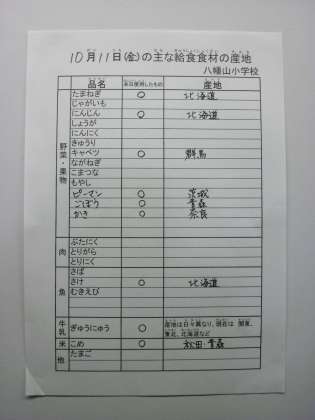 10月11日(金)の主な給食食材の産地
八幡山小学校
品名 本日使用したもの 産地
野菜・果物
たまねぎ ○ 北海道
じゃがいも
にんじん ○ 北海道
しょうが
にんにく
きゅうり
キャベツ ○ 群馬
ながねぎ
こまつな
もやし
ピーマン ○ 茨城
ごぼう ○ 青森
かき ○ 奈良
肉
ぶたにく
とりがら
とりにく
魚
さば
さけ ○ 北海道
むきえび
牛乳 ぎゅうにゅう ○ 産地は日々異なり、現在は 関東、
東北、北海道など
米 こめ ○ 青森
他 たまご